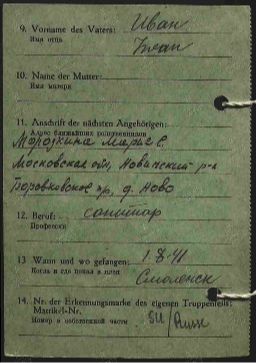 9. Vorname des Vaters: Иван
Имя отца
10. Name der Mutter:
Имя матери
11. Anschrift der nächsten Angehörigen:
Адрес ближайших родственников
Морозкина Мария С.
Московская обл,
д. Ново
12. Beruf: санитар
Профессия
13 Wann und wo gefangen: 1 8 41
Когда и где попал в плен
Смоленск
14. Nr. der Erkennungsmarke des eigenen Truppenteils:
Matrikel-Nr.
Номер в собственной части